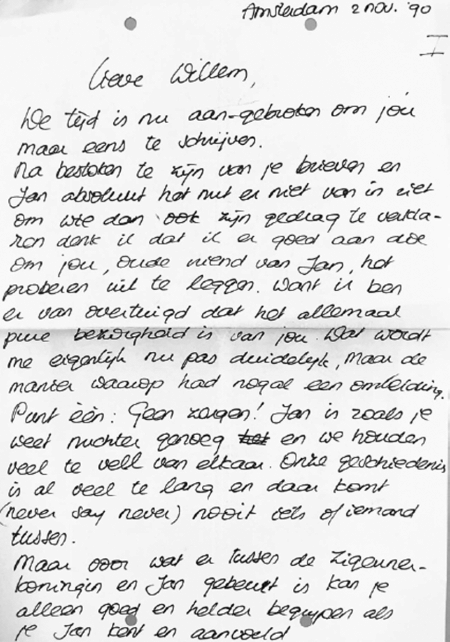 Amsterdam 2 nov. '90
I
Lieve Willem,
De tijd is nu aan-gebroken om jou
maar eens te schrijven.
Na bestoken te zijn van je brieven en
Jan absoluut het nut er niet van in ziet
om wie dan ook zijn gedrag te verkla-
ren denk ik dat ik er goed aan doe
om jou, oude vriend van Jan, het
proberen uit te leggen. Want ik ben
er van overtuigd dat het allemaal
pure bezorgheid is van jou. Dat wordt
me eigenlijk nu pas duidelijk, maar de
manier waarop had nogal een omleiding.
Punt één: Geen zorgen! Jan is zoals je
weet nuchter genoeg en we houden
veel te vell van elkaar. Onze geschiedenis
is al veel te lang en daar komt
(never say never) nooit iets of iemand
tussen.
Maar voor wat er tussen de Zigeuner-
koningin en Jan gebeurt is kan je
alleen goed en helder begrijpen als
je Jan kent en aanvoeld!